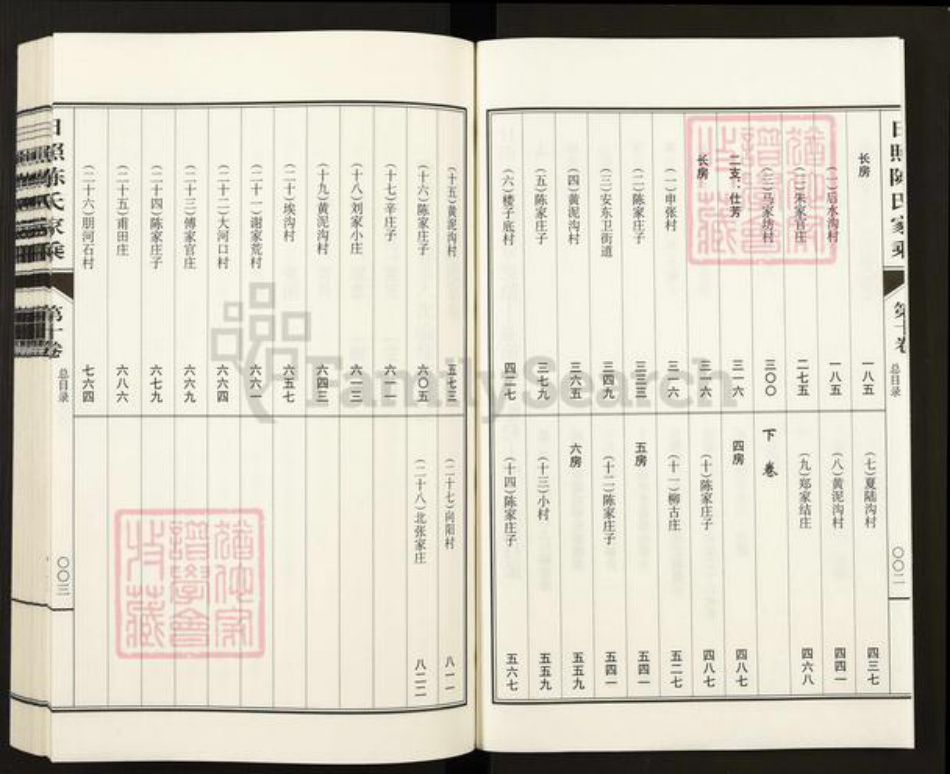 日照陈氏家乘
第十卷
总目录
〇〇二
长房 一八五
（一）后水沟村 一八五
（二）朱家官庄 二七五
（三）马家坊村 三〇〇
二支：仕芳 三一六
长房 三一六
（一）申张村 三一六
（二）陈家庄子 三三三
（三）安东卫街道 三四九
（四）黄泥沟村 三六五
（五）陈家庄子 三七九
（六）楼子底村 四二七
（七）夏陆沟村 四三七
（八）黄泥沟村 四四一
（九）郑家结庄 四六八
下卷
四房 四八七
（十）陈家庄子 四八七
（十一）柳古庄 五二七
五房 五四一
（十二）陈家庄子 五四一
六房 五五九
（十三）小村 五五九
（十四）陈家庄子 五六七
（十五）黄泥沟村 五七三
（十六）陈家庄子 六〇五
（十七）辛庄子 六一一
（十八）刘家小庄 六一三
（十九）黄泥沟村 六四三
（二十）埃沟村 六五七
（二十一）谢家荒村 六六一
（二十二）大河口村 六六四
（二十三）傅家官庄 六六九
（二十四）陈家庄子 六七九
（二十五）甫田庄 六八六
（二十六）朋河石村 七六四
（二十七）向阳村 八一一
（二十八）北张家庄 八二二
日照陈氏家乘
第十卷
总目录
〇〇三
FamilySearch